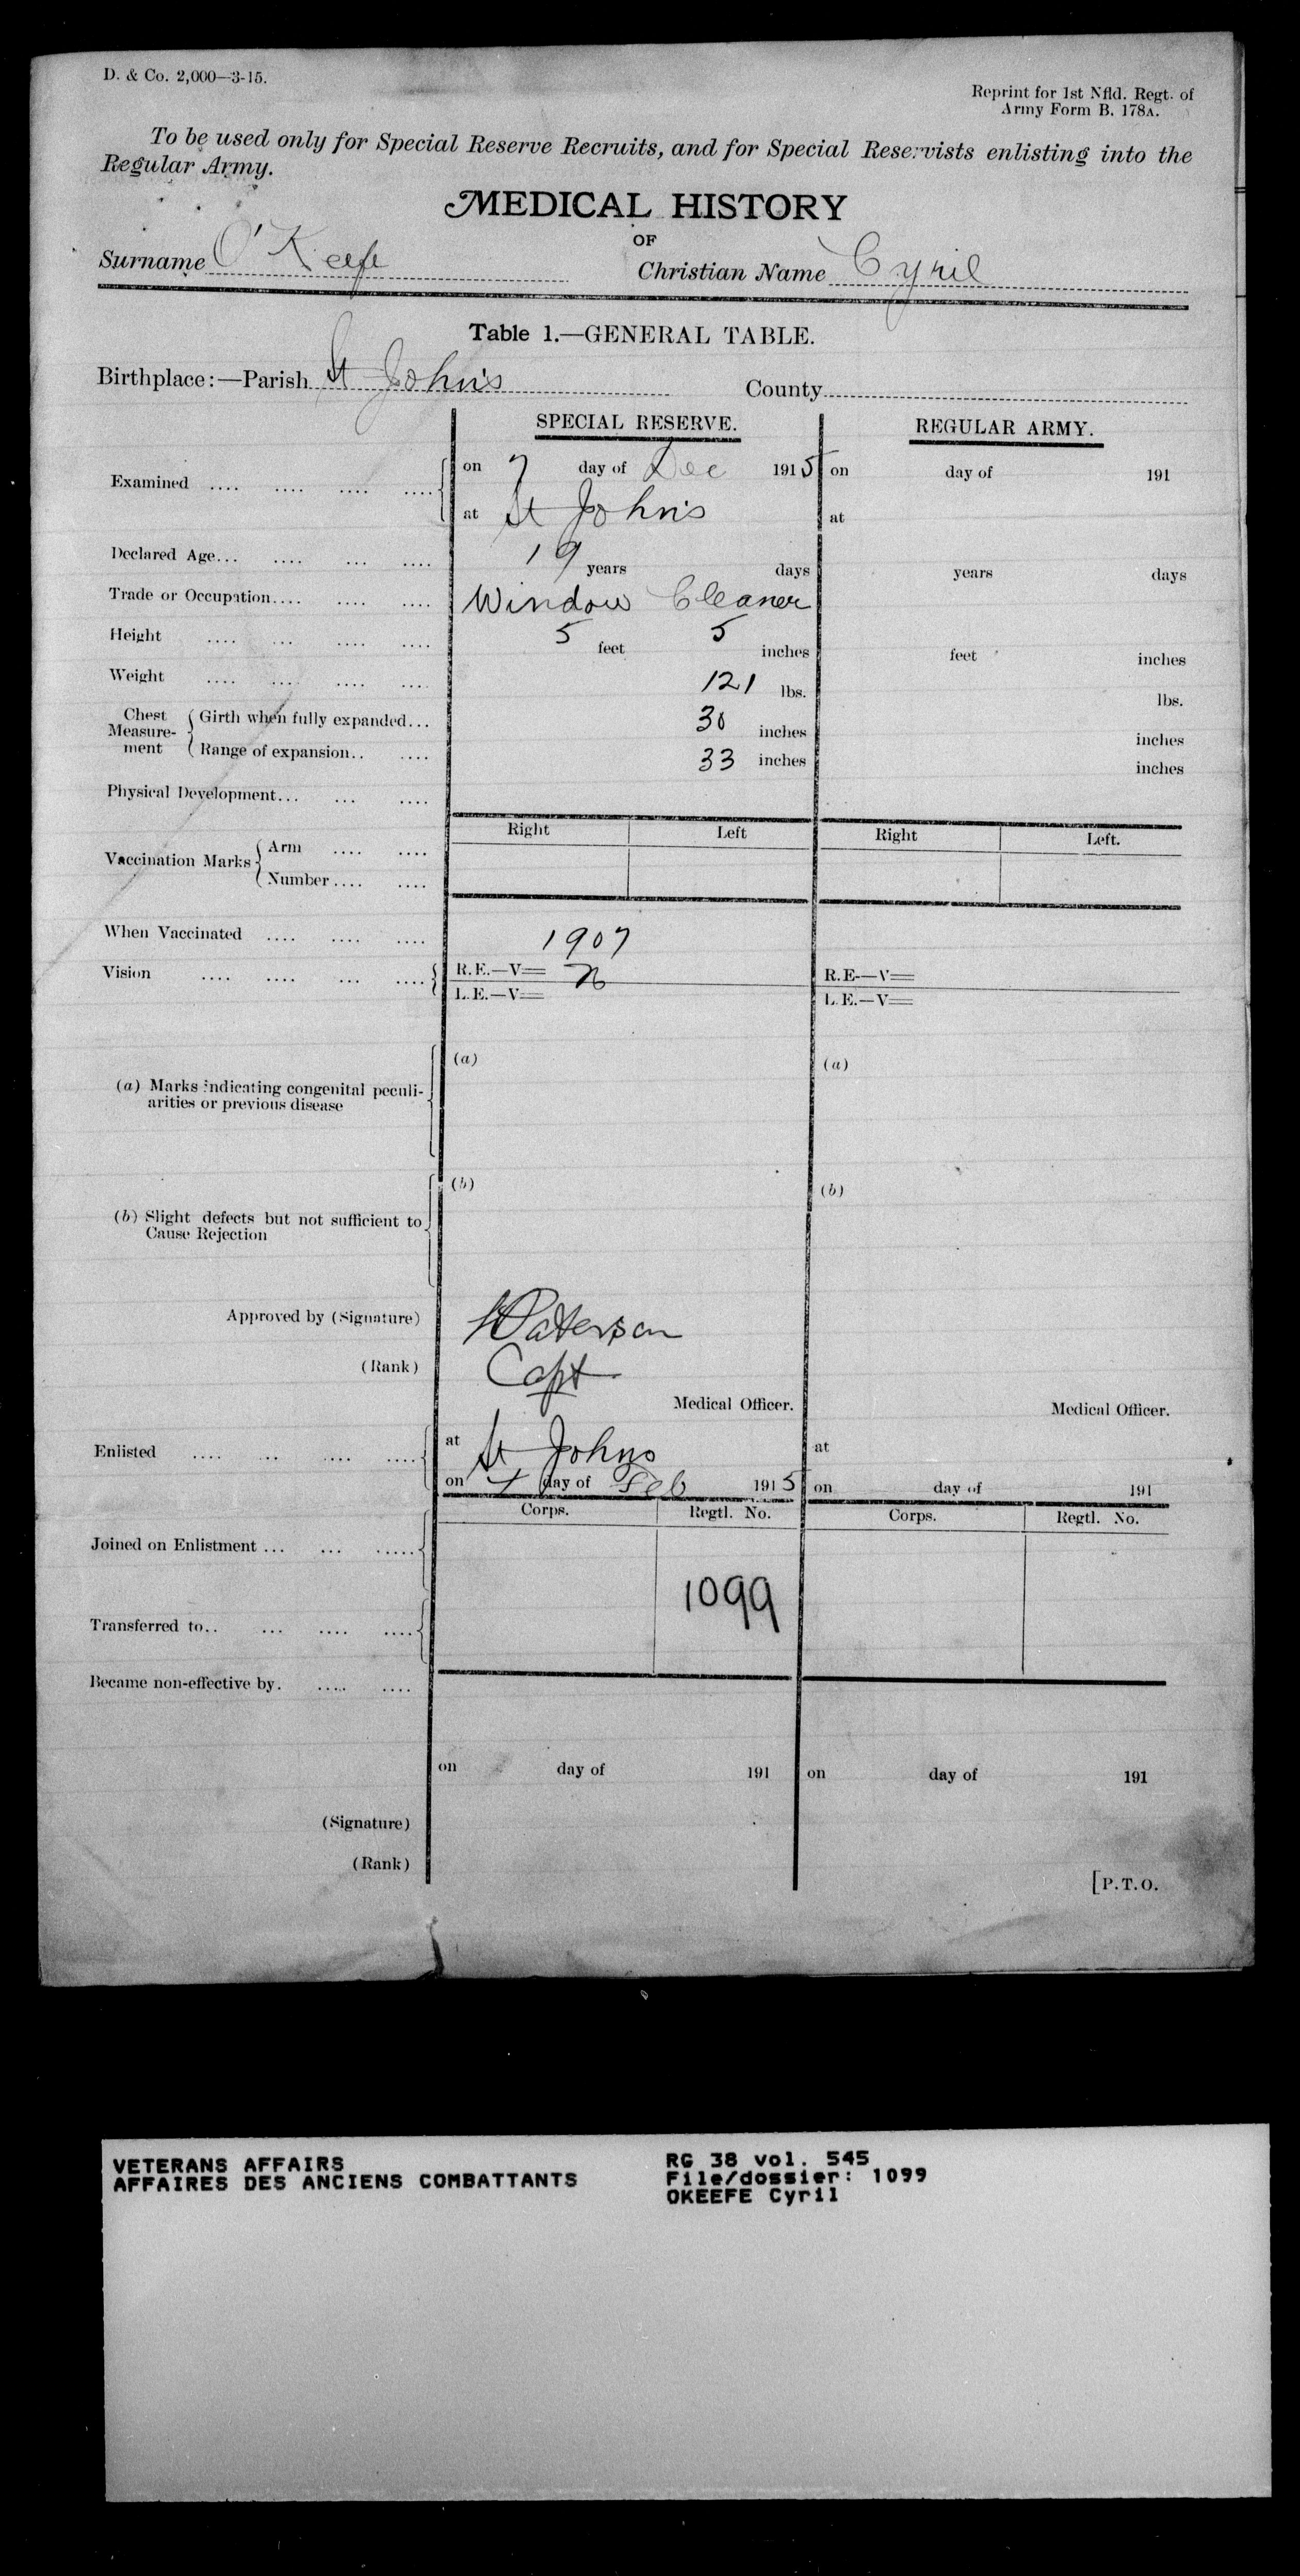 D. & Co. 2,000—3-15.
Reprint for 1st Nfld. Regt. of
Army Form B. 178A.
To be used only for Special Reserve Recruits, and for Special Reservists enlisting into the
Regular Army.
MEDICAL HISTORY
OF
Surname O'Keefe Christian Name Cyril
Table 1.—GENERAL TABLE.
Birthplace:—Parish St John's County
SPECIAL RESERVE. REGULAR ARMY.
Examined .... .... .... .... on 7 day of Dec 1915 on day of 191
at St John's at
Declared Age... .... ... .... 19 years days years days
Trade or Occupation.... .... .... Window Cleaner
Height .... ... .... .... 5 feet 5 inches feet inches
Weight .... .... .... .... 121 lbs. lbs.
Chest Measurement Girth when fully expanded... 30 inches inches
Range of expansion.. .... 33 inches inches
Physical Development... ... ....
Right Left Right Left.
Vaccination Marks Arm .... ....
Number .... ....
When Vaccinated .... .... .... 1907
Vision .... .... ... .... R.E.—V= R.E—V=
L.E.—V= L.E.—V=
(a) (a)
(a) Marks indicating congenital peculi-
arities or previous disease
(b) (b)
(b) Slight defects but not sufficient to
Cause Rejection
Approved by (Signature) Paterson
(Rank) Capt
Medical Officer. Medical Officer.
Enlisted .... ... .... .... at St Johns at
on day of Feb 1915 on day of 191
Corps. Regtl. No. Corps. Regtl. No.
Joined on Enlistment ... ... .....
1099
Transferred to.. ... .... ....
Became non-effective by. .... ....
on day of 191 on day of 191
(Signature)
(Rank)
[P.T.O.
VETERANS AFFAIRS RG 38 vol. 545
AFFAIRES DES ANCIENS COMBATTANTS File/dossier: 1099
OKEEFE Cyril